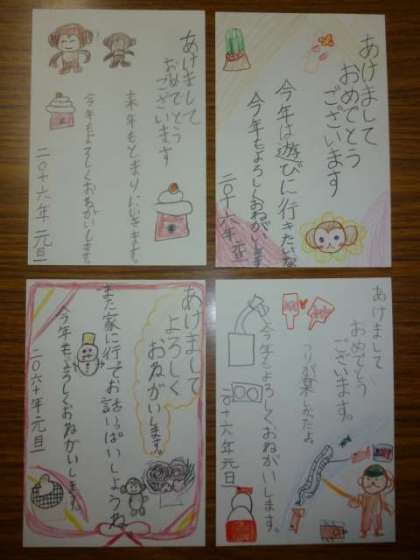 あけまして
おめでとう
ございます
来年もとまりにいきます。
今年もよろしくおねがいします。
二〇十六年 元旦
あけまして
おめでとう
ございます
今年は遊びに行きたいな
今年もよろしくおねがいします
二〇十六年 元旦
あけまして
よろしく
おねがいします。
また家に行でお話いっぱいしようね
今年もよろしくおねがいします。
二〇六十年 元旦
あけまして
おめでとう
ございます。
つりが楽しみだよ。
今年もよろしくおねがいします。
二〇十六年 元旦